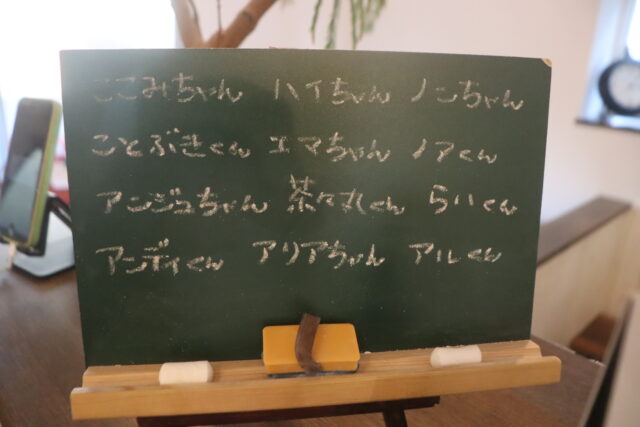 ここみちゃん ハイちゃん ノンちゃん
ことぶきくん エマちゃん ノアくん
アンジュちゃん 茶々丸くん らいくん
アンディくん アリアちゃん アルくん